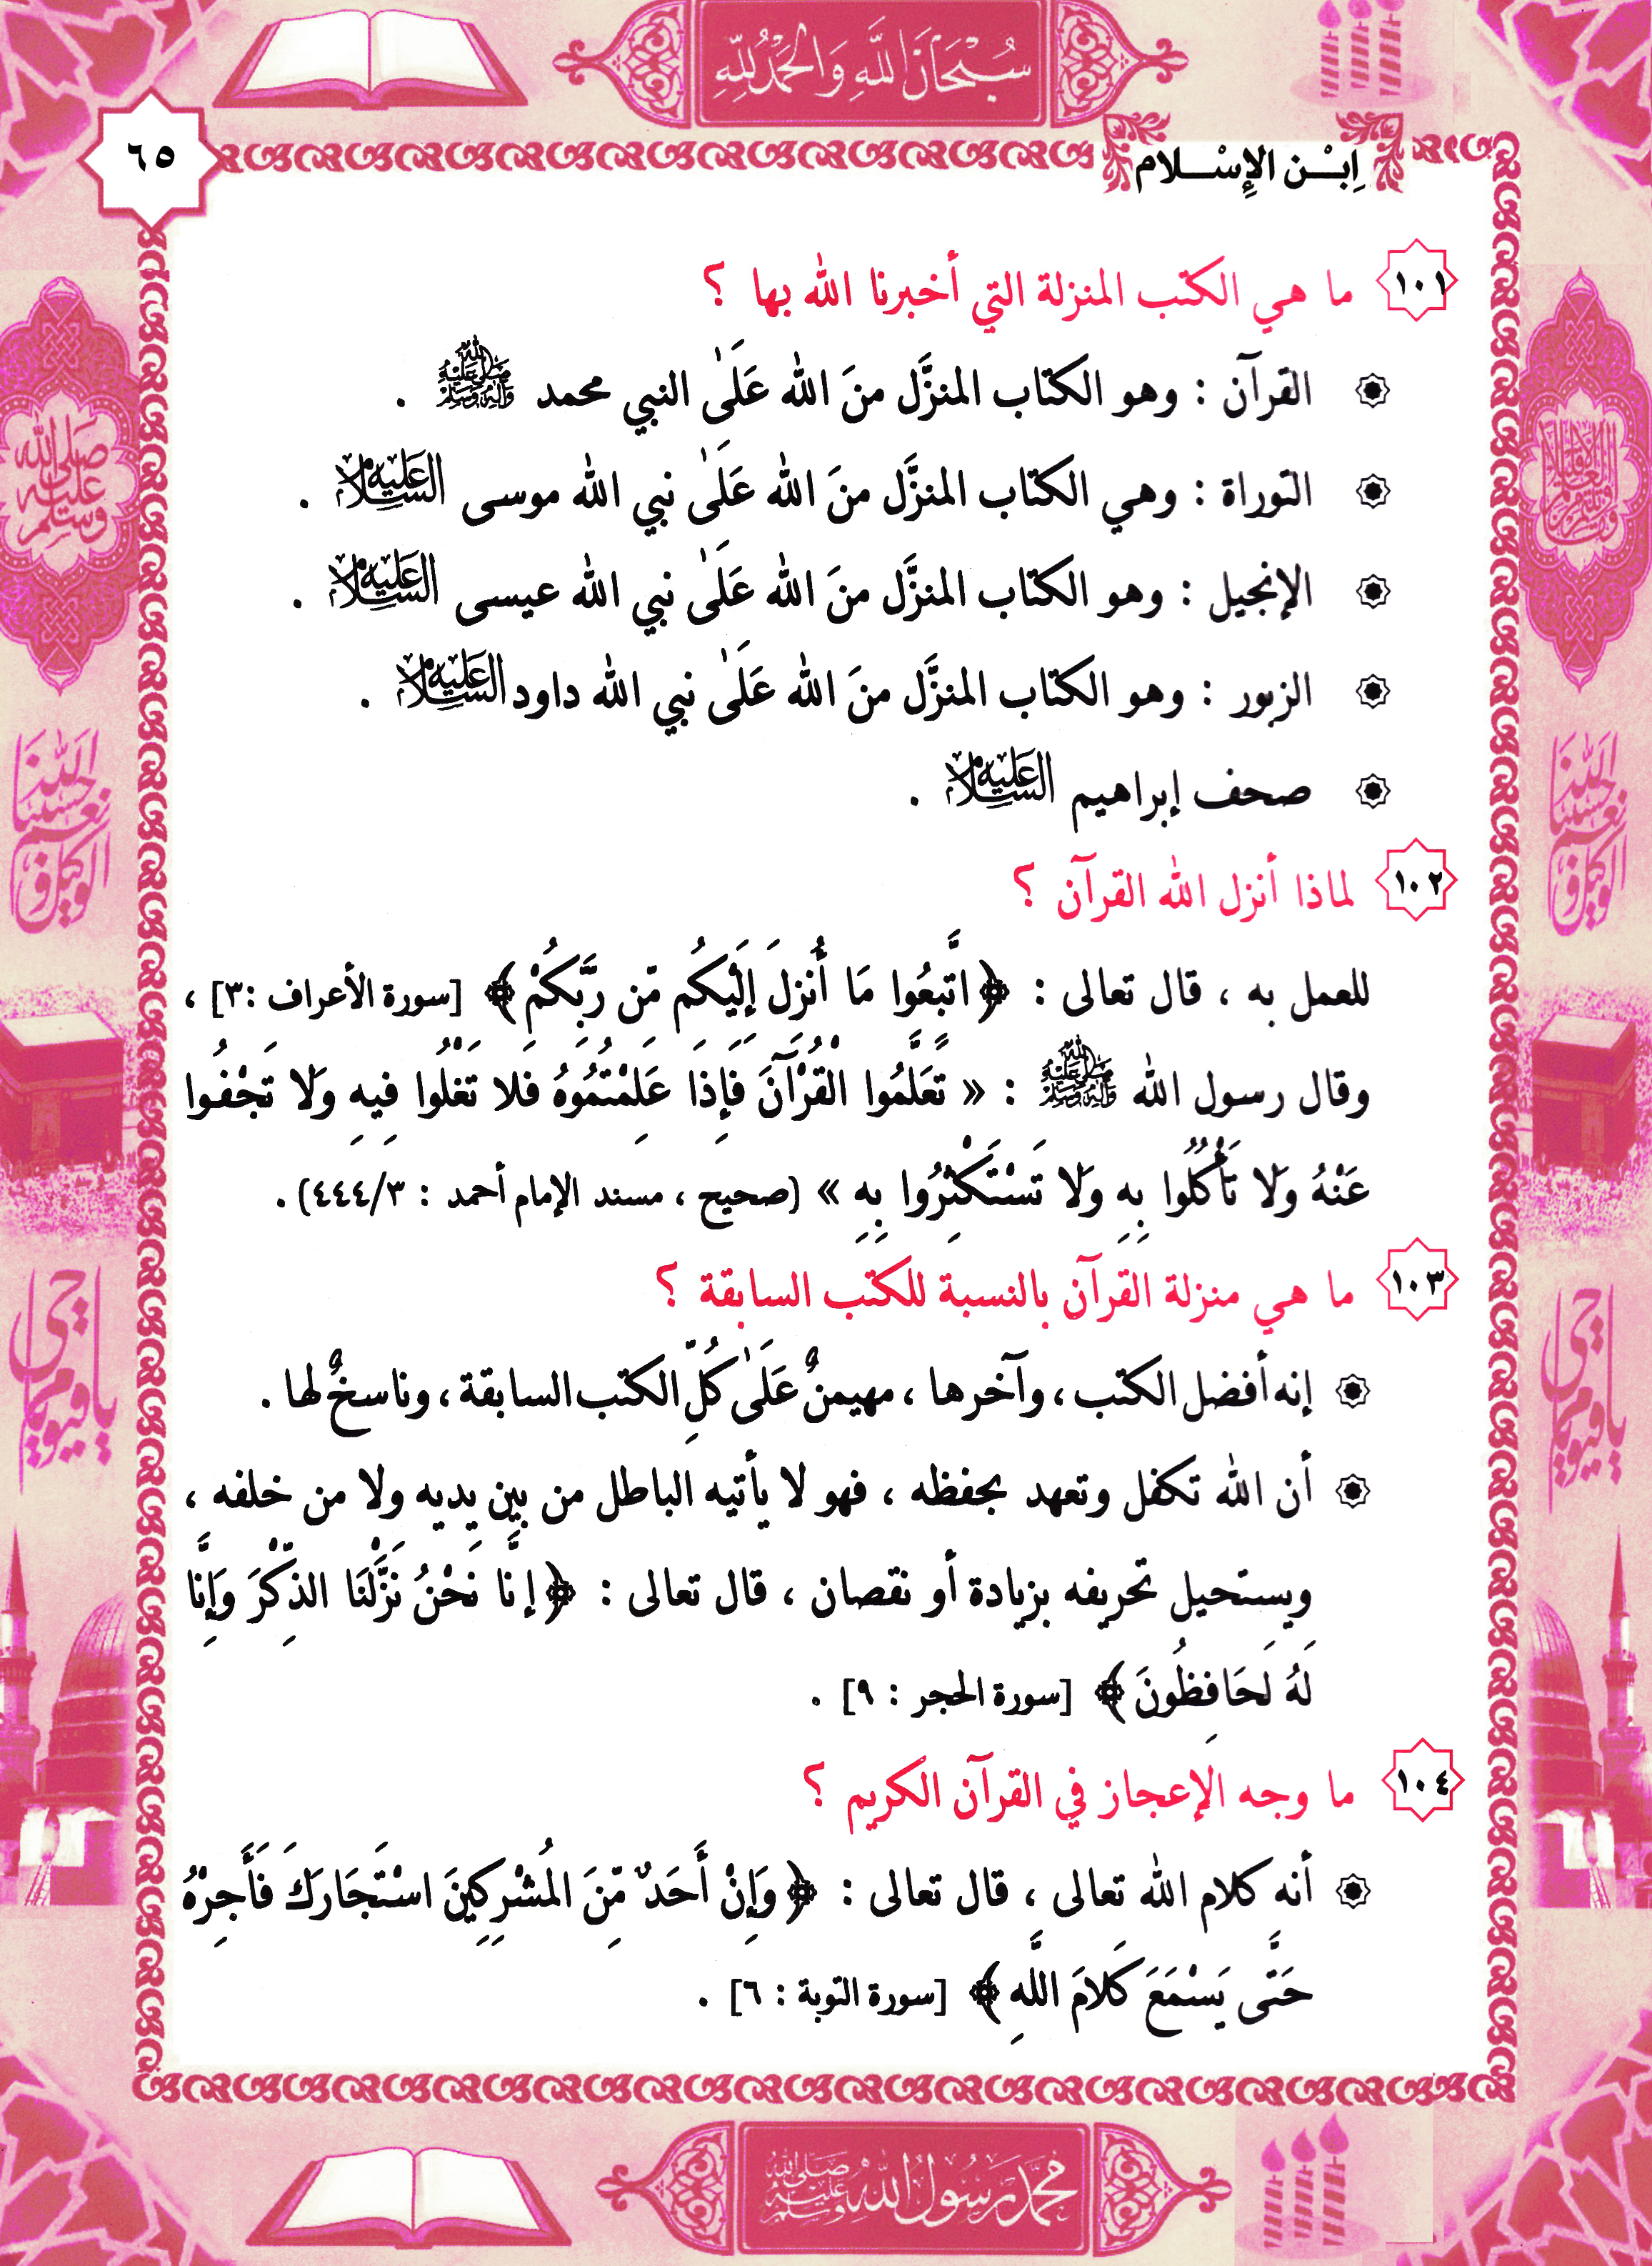 سُبْحَانَ اللَّهِ وَالْحَمْدُ لِلَّهِ
٦٥
اِبْـن الإِسْـلام
١٠١ ما هي الكتب المنزلة التي أخبرنا الله بها ؟
القرآن : وهو الكتاب المنزَّل منَ الله عَلَىٰ النبي محمد ﷺ .
التوراة : وهي الكتاب المنزَّل منَ الله عَلَىٰ نبي الله موسى عَلَيْهِ السَّلام .
الإنجيل : وهو الكتاب المنزَّل منَ الله عَلَىٰ نبي الله عيسى عَلَيْهِ السَّلام .
الزبور : وهو الكتاب المنزَّل منَ الله عَلَىٰ نبي الله داود عَلَيْهِ السَّلام .
صحف إبراهيم عَلَيْهِ السَّلام .
١٠٢ لماذا أنزل الله القرآن ؟
للعمل به ، قال تعالى : ﴿اتَّبِعُوا مَا أُنزِلَ إِلَيْكُم مِّن رَّبِّكُمْ﴾ [سورة الأعراف :٣] ،
وقال رسول الله ﷺ : « تَعَلَّمُوا الْقُرْآنَ فَإِذَا عَلِمْتُمُوهُ فَلا تَغْلُوا فِيهِ وَلا تَجْفُوا
عَنْهُ وَلا تَأْكُلُوا بِهِ وَلا تَسْتَكْثِرُوا بِهِ » (صحيح ، مسند الإمام أحمد : ٤٤٤/٣) .
١٠٣ ما هي منزلة القرآن بالنسبة للكتب السابقة ؟
إنه أفضل الكتب ، وآخرها ، مهيمنٌ عَلَىٰ كُلِّ الكتب السابقة ، وناسخٌ لها .
أن الله تكفل وتعهد بحفظه ، فهو لا يأتيه الباطل من بين يديه ولا من خلفه ،
ويستحيل تحريفه بزيادة أو نقصان ، قال تعالى : ﴿إنَّا نَحْنُ نَزَّلْنَا الذِّكْرَ وَإِنَّا
لَهُ لَحَافِظُونَ﴾ [سورة الحجر : ٩] .
١٠٤ ما وجه الإعجاز في القرآن الكريم ؟
أنه كلام الله تعالى ، قال تعالى : ﴿وَإِنْ أَحَدٌ مِّنَ الْمُشْرِكِينَ اسْتَجَارَكَ فَأَجِرْهُ
حَتَّى يَسْمَعَ كَلامَ اللَّهِ﴾ [سورة التوبة : ٦] .
صلى الله عليه وسلم
حسبنا الله ونعم الوكيل
حسبنا الله ونعم الوكيل
يا حي يا قيوم
يا حي يا قيوم
محمد رسول الله صلى الله عليه وسلم